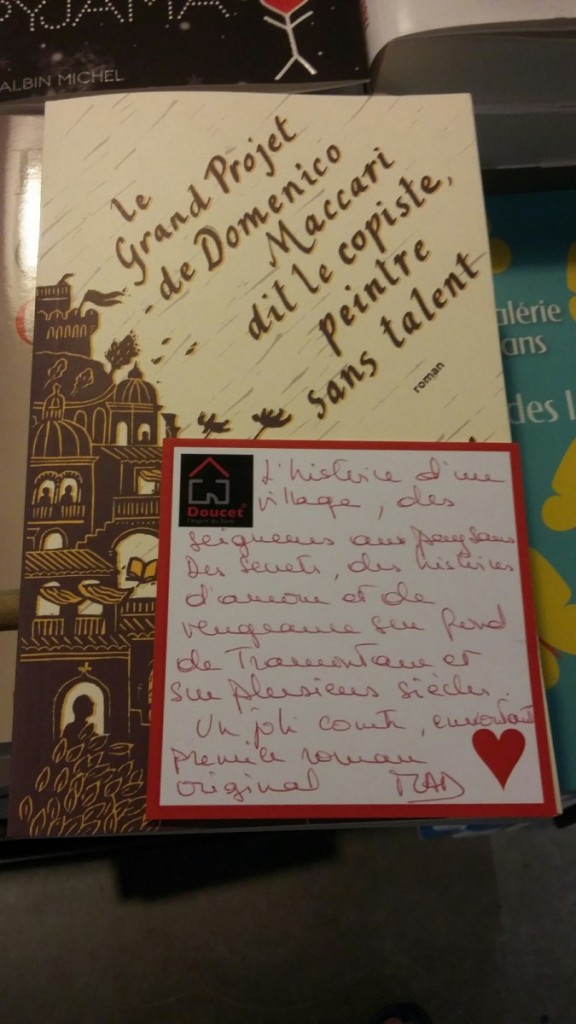 PYJAMA
ALBIN MICHEL
Le
Grand Projet
de Domenico
Maccari
dit le copiste,
peintre
sans talent
roman
alérie
ans
des l
Doucet
L'histoire d'un
village, des
seigneurs aux paysans
Des secrets, des histoires
d'amour et de
vengeance sur fond
de Tramontane et
sur plusieurs siècles.
Un joli conte, envoûtant
premier roman
original MAD